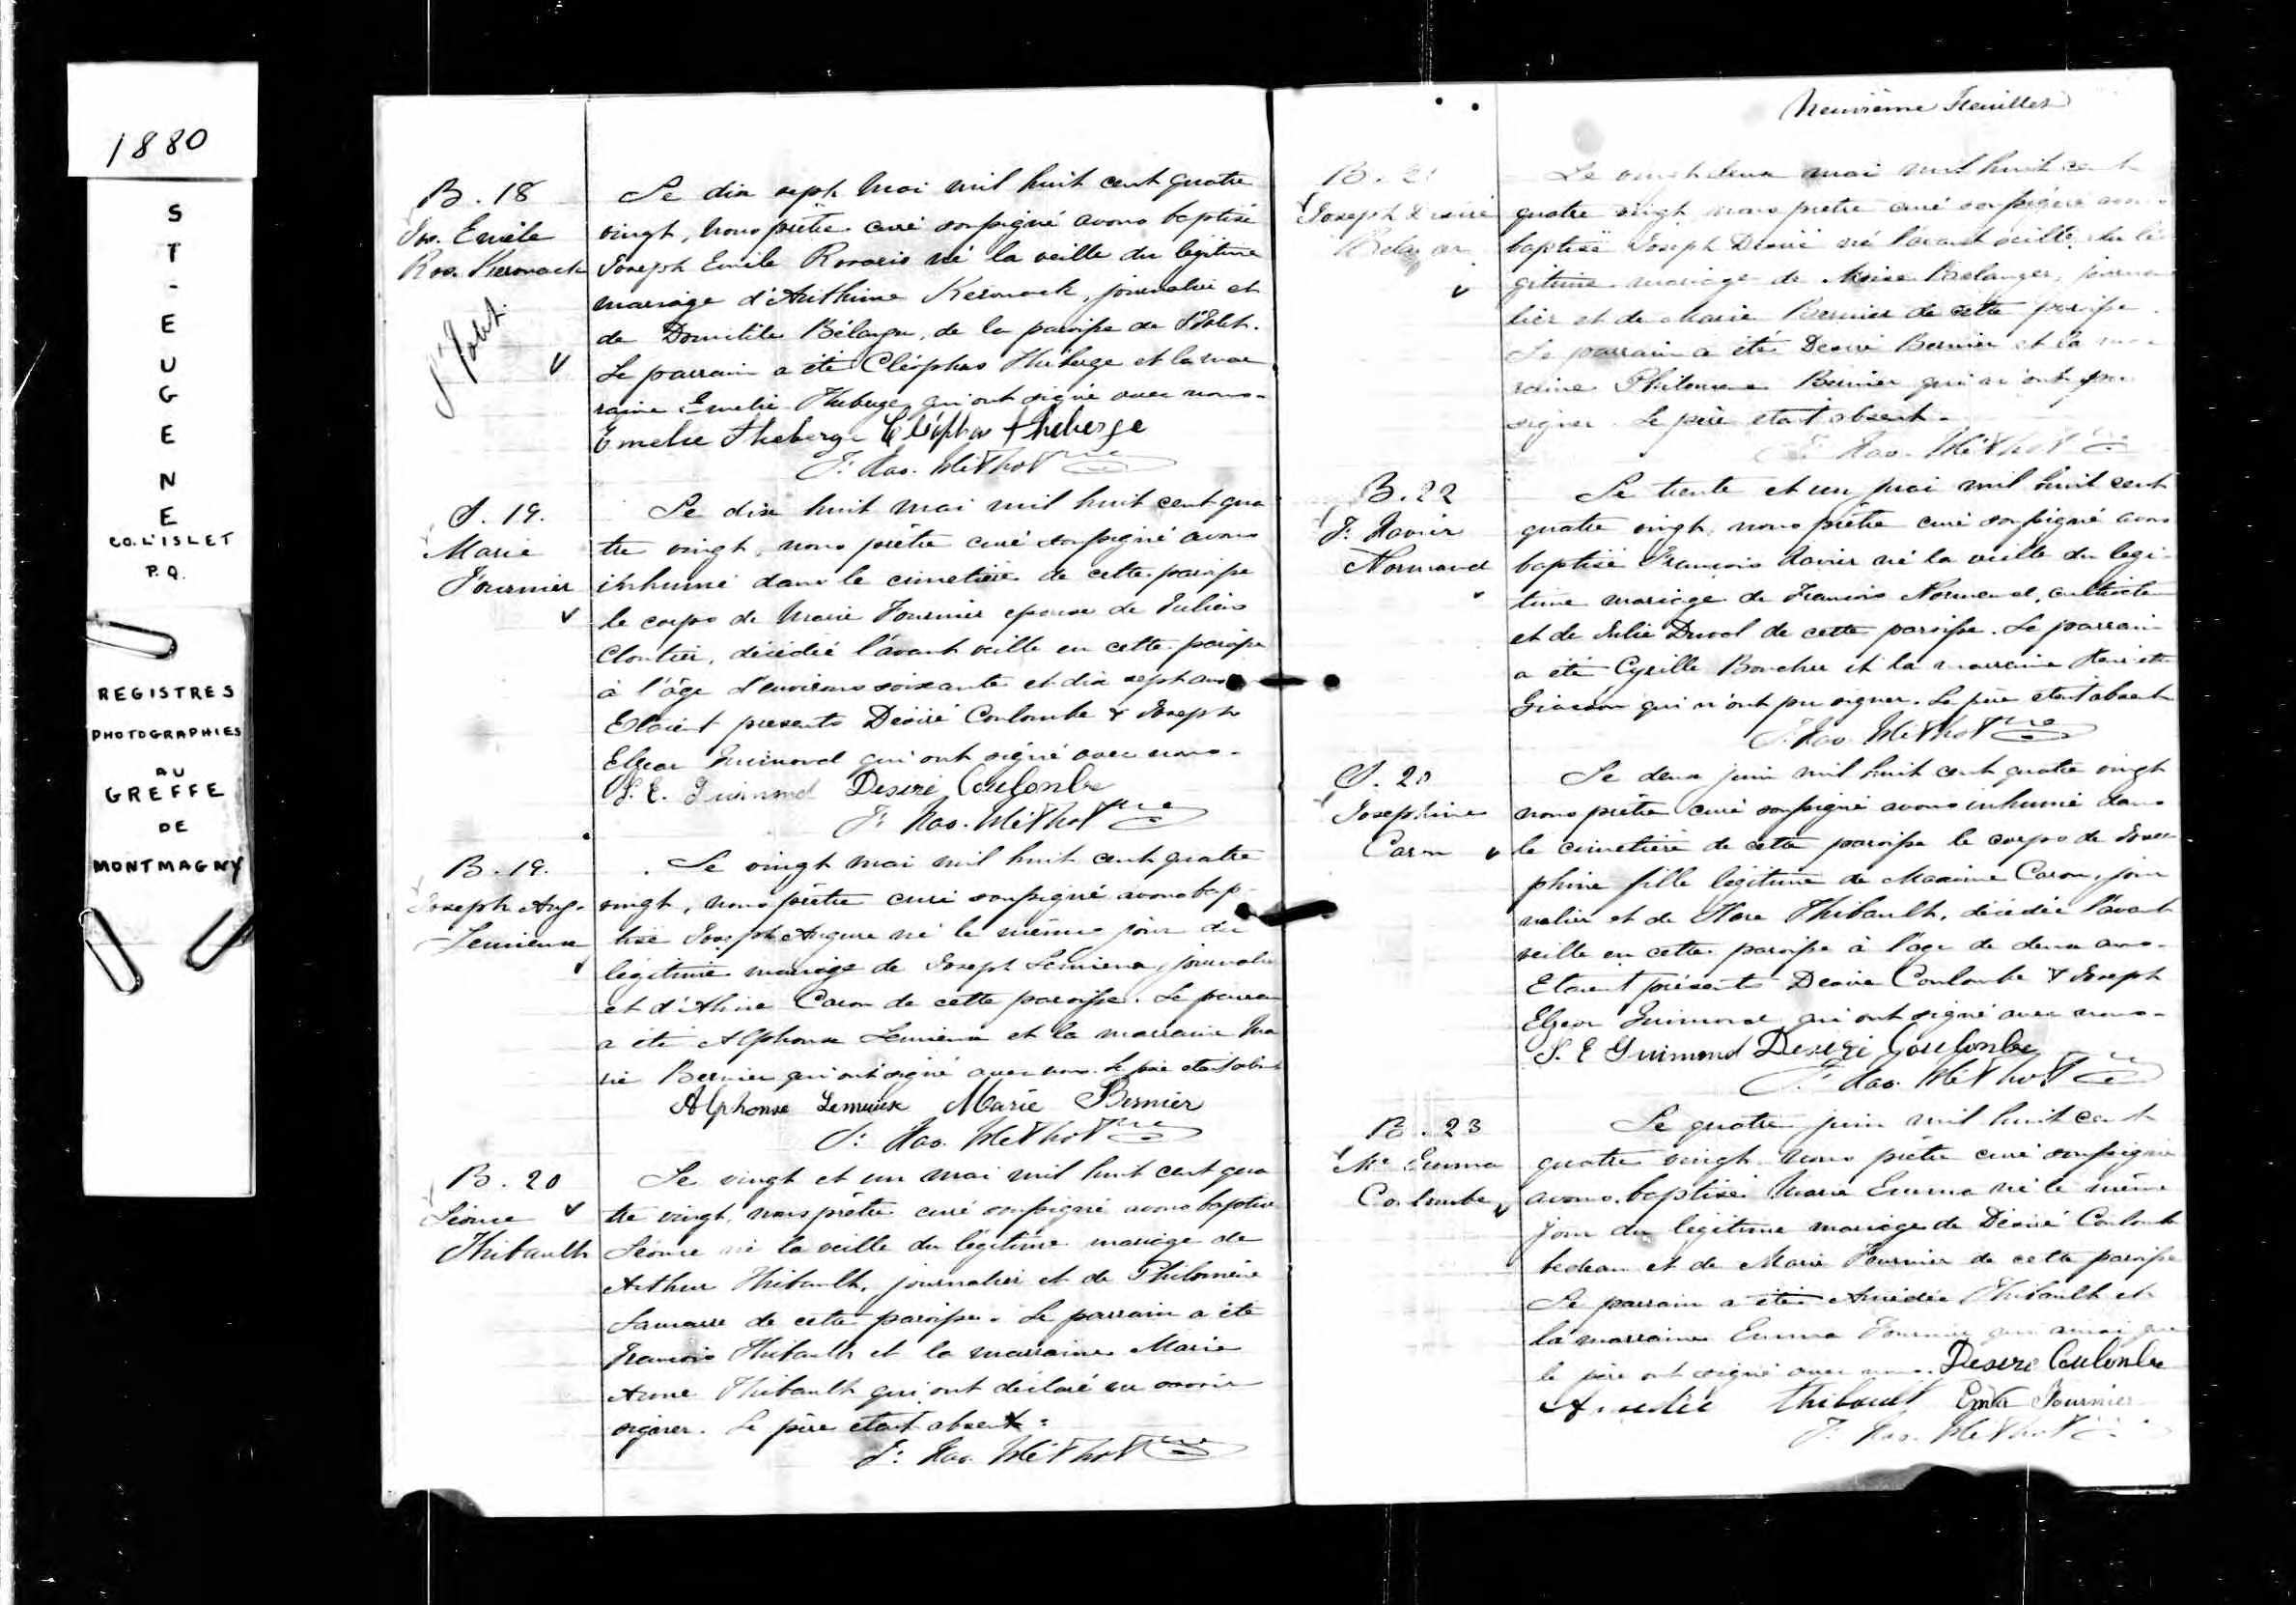 1880
ST-EUGENE
CO. L'ISLET
P.Q.
REGISTRES
PHOTOGRAPHIES
AU
GREFFE
DE
MONTMAGNY
B. 18
Jos. Emile
Ros. Kerouack
l'Islet
Le dix sept Mai mil huit cent quatre
vingt, nous prêtre curé soussigné avons baptisé
Joseph Emile Rosario né la veille du légitime
mariage d'Anthime Kerouack, journalier et
de Domitile Bélanger, de la paroisse de l'Islet.
Le parrain a été Cléophas Théberge et la mar
raine Emelie Theberge qui ont signé avec nous.
Emelie Theberge Cléophas Theberge
F: Xav. Méthot Ptre
S. 19.
Marie
Fournier
Le dix huit mai mil huit cent qua
tre vingt, nous prêtre curé soussigné avons
inhumé dans le cimetière de cette paroisse
le corps de Marie Fournier epouse de Julien
Cloutier, décédée l'avant veille en cette paroisse
à l'âge d'environ soixante et dix sept ans
Etaient presents Désiré Coulombe & Joseph
Elzear Guimond qui ont signé avec nous.
J. E. Guimond Desiré Coulombe
F: Xav. Méthot Ptre
B. 19.
Joseph Aug.
Lemieux
Le vingt mai mil huit cent quatre
vingt, nous prêtre curé soussigné avons bap-
tisé Joseph né le même jour du
légitime mariage de Joseph Lemieux, journalier
et d' Caron de cette paroisse. Le parrain
a été Alphonse Lemieux et la marraine Ma
rie Bernier qui ont signé avec nous. Le père etait absent
Alphonse Lemieux Marie Bernier
F: Xav. Méthot Ptre
B. 20
Léonce
Thibault
Le vingt et un mai mil huit cent qua
tre vingt, nous prêtre curé soussigné avons baptisé
Léonce né la veille du légitime mariage de
Arthur Thibault, journalier et de Philomène
Lamarre de cette paroisse. Le parrain a été
François Thibault et la marraine Marie
Anne Thibault qui ont déclaré ne savoir
signer. Le père etait absent.
F: Xav. Méthot Ptre
Neuvième Feuillet
B. 21
Joseph Desiré
Belanger
Le vingt deux mai mil huit cent
quatre vingt, nous prêtre curé soussigné avons
baptisé Joseph Desiré né l'avant veille, du lé
gitime mariage de Moise Belanger, journa
lier et de Marie Bernier de cette paroisse.
Le parrain a été Desiré Bernier et la mar
raine Philomene Bernier qui n'ont pu
signer. Le père etait absent.
F: Xav. Méthot Ptre
B. 22
F: Xavier
Normand
Le trente et un mai mil huit cent
quatre vingt, nous prêtre curé soussigné avons
baptisé François Xavier né la veille du legi-
time mariage de François Normand, cultivateur
et de Julie Duval de cette paroisse. Le parrain
a été Cyrille Boucher et la marraine Henriette
Giasson qui n'ont pu signer. Le père etait absent
F: Xav. Méthot Ptre
S. 20
Josephine
Caron
Le deux juin mil huit cent quatre vingt
nous prêtre curé soussigné avons inhumé dans
le cimetière de cette paroisse le corps de Jose
phine fille légitime de Maxime Caron, jour
nalier et de Thibault, décédée l'avant
veille en cette paroisse à l'age de deux ans.
Etaient présents Desiré Coulombe & Joseph
Elzear Guimond qui ont signé avec nous.
J. E Guimond Desiré Coulombe
F: Xav. Méthot Ptre
B. 23
Mie Emma
Coulombe
Le quatre juin mil huit cent
quatre vingt nous prêtre curé soussigné
avons baptisé Marie Emma né le même
jour du légitime mariage de Désiré Coulombe
bedeau et de Marie Fournier de cette paroisse
Le parrain a été Amédée Thibault et
la marraine Emma Fournier qui ainsi que
le père ont signé avec nous. Desiré Coulombe
Amedée Thibault Ema Fournier
F: Xav. Méthot Ptre